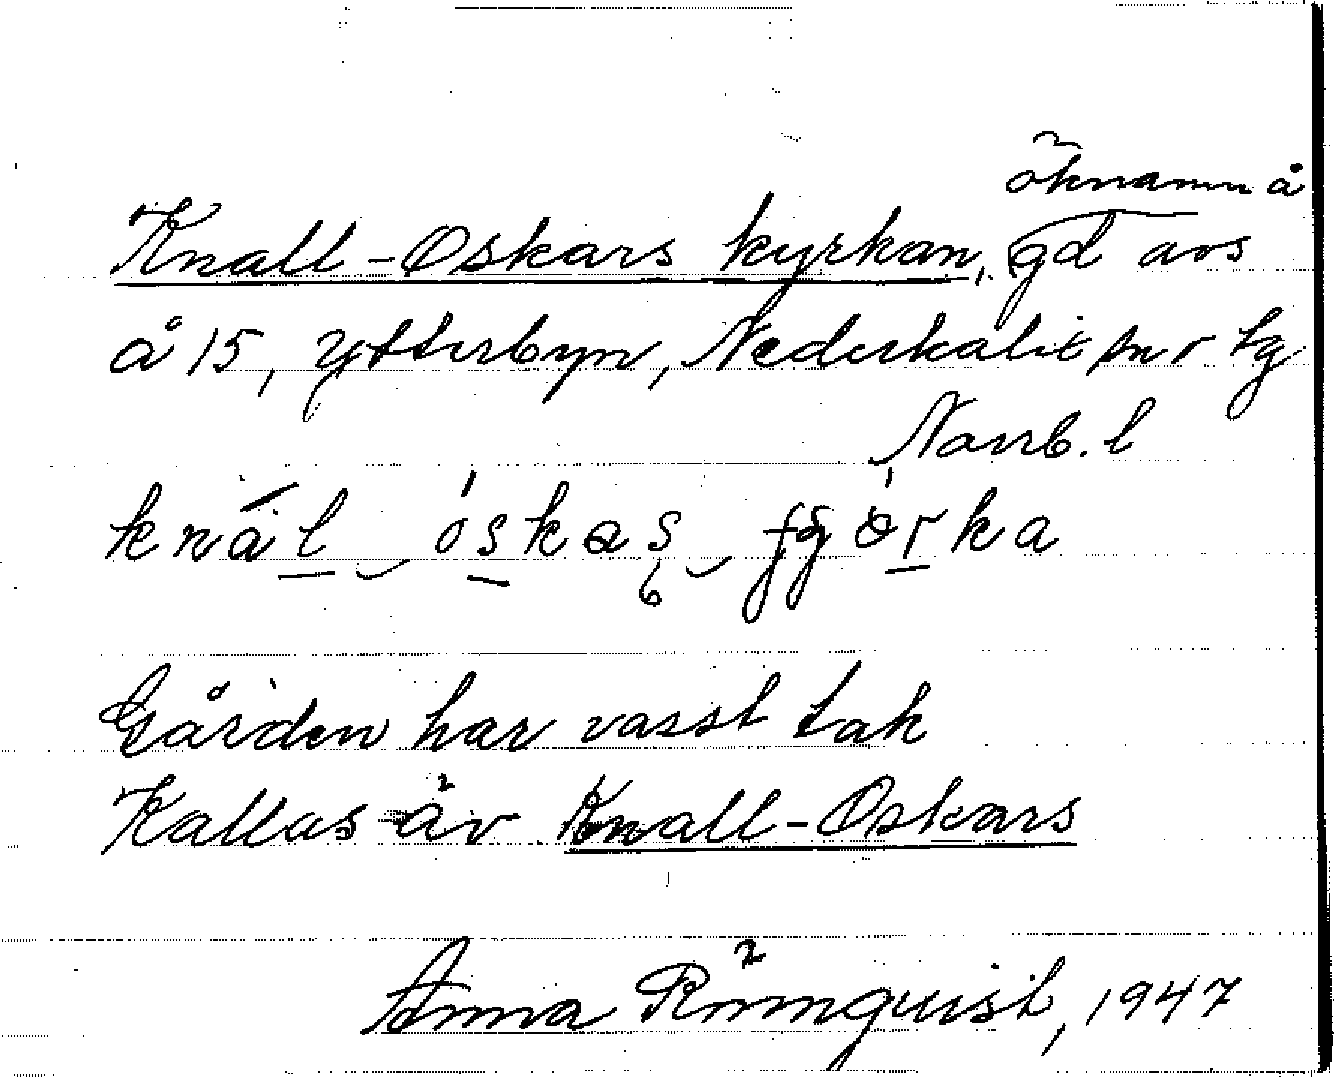 öknamn å
Knall-Oskars kyrkan, gd avs
å 15, Ytterbyn, Nederkalix snr tg
Norrb. l
knál óskas fjörka
Gården har vasst tak
Kallas äv Knall-Oskars
Anna Rönnquist, 1947